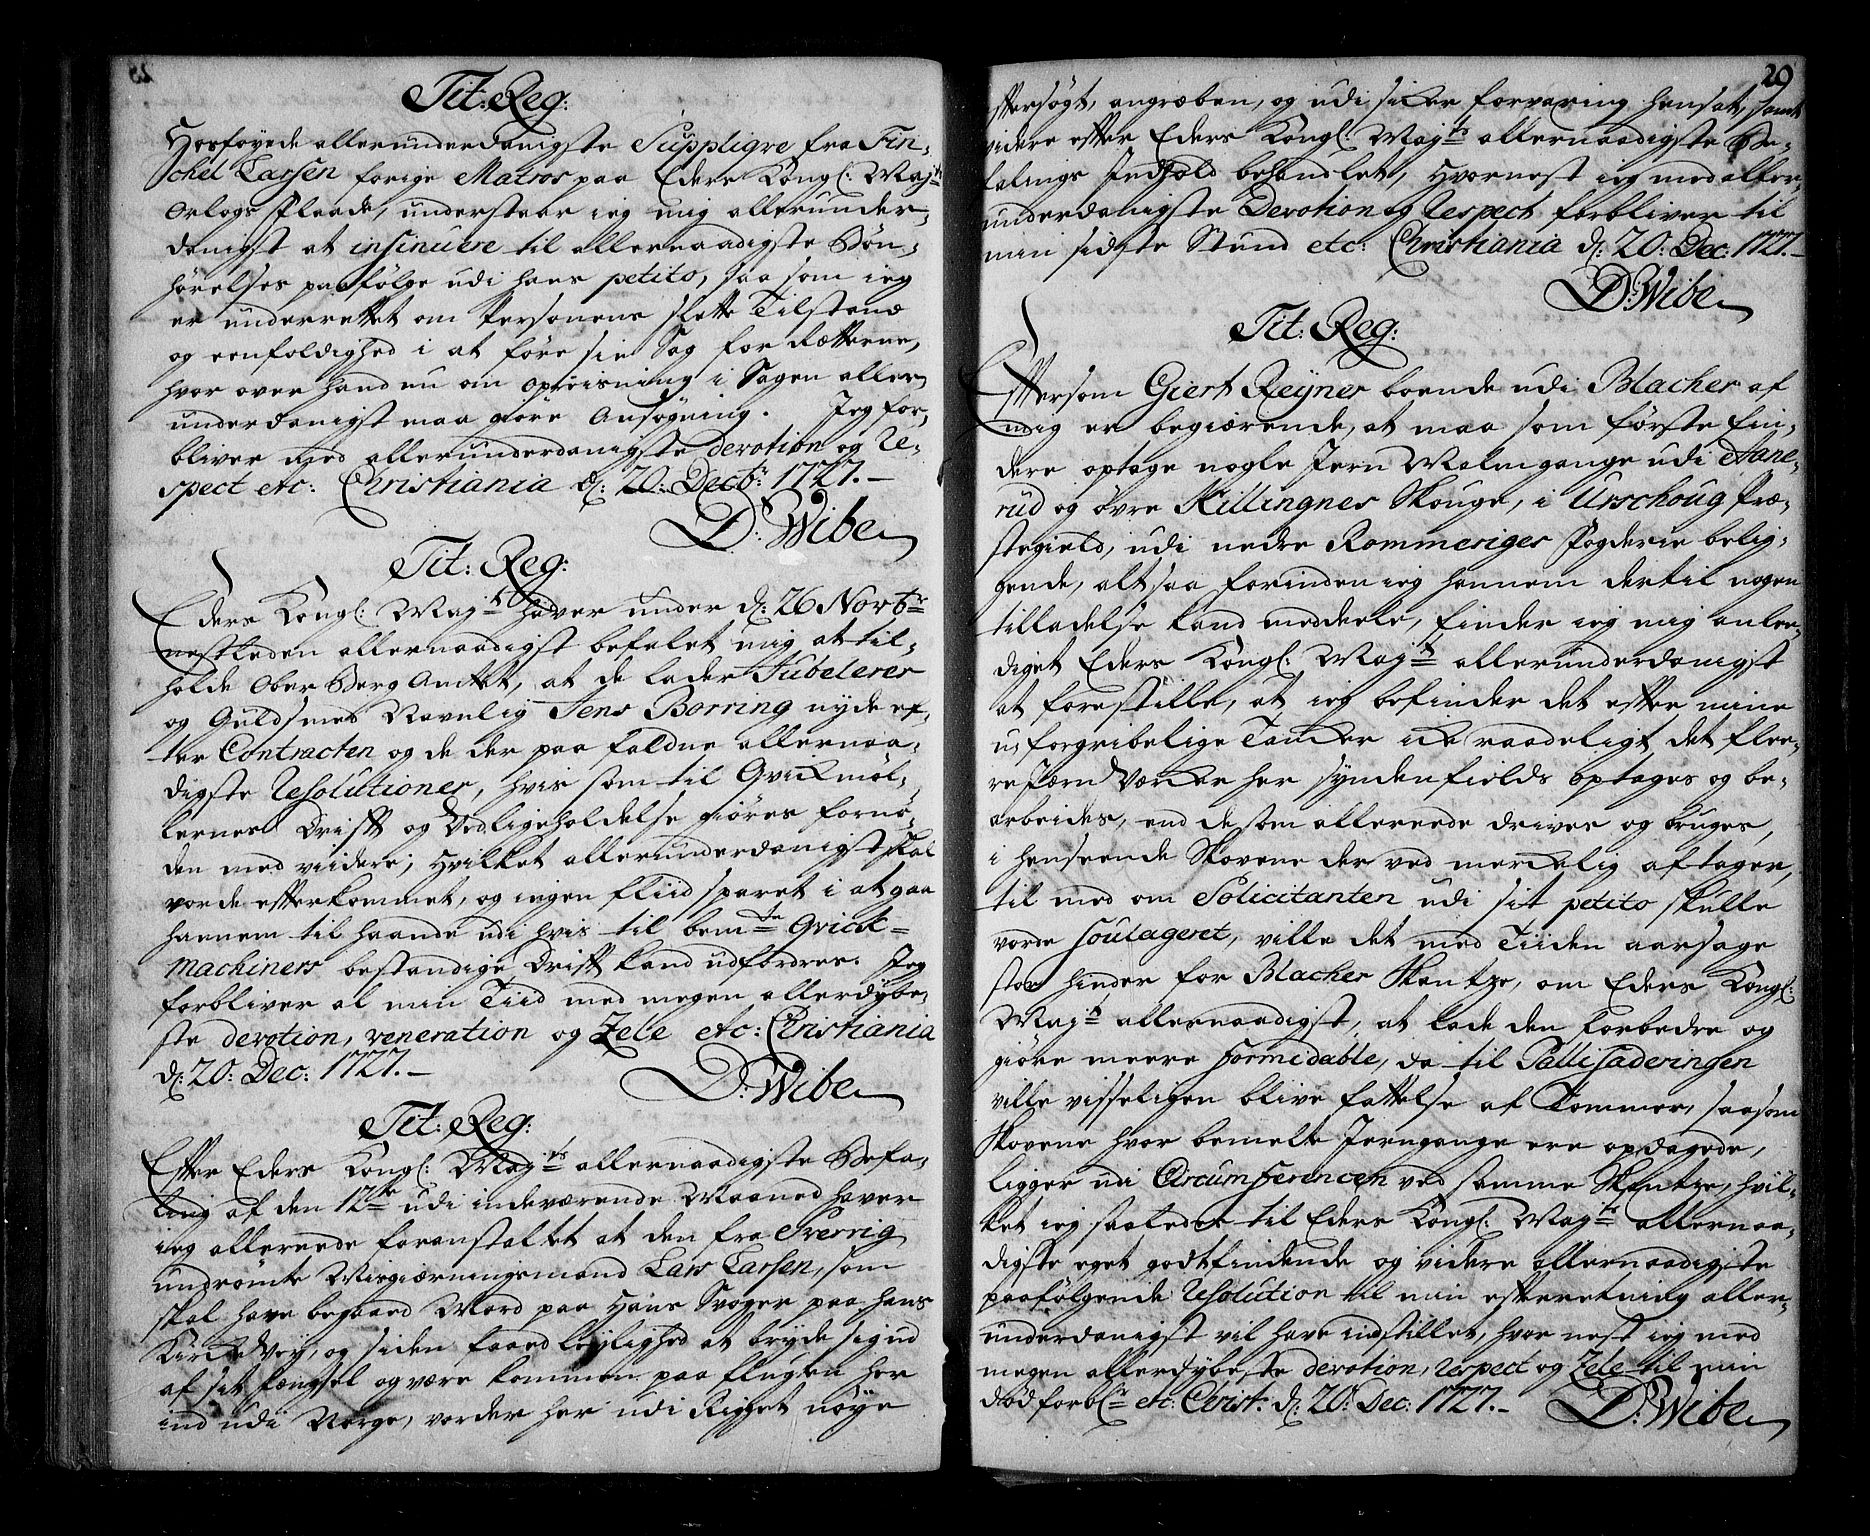 Tit: Reg:
Hosføyede allerunderdanigste Suppliqve fra Fin,
chel Larsen forige Matros paa Eders Kongl: Majts
Orlogs Flaade, understaar ieg mig allerunder,
danigst at insinuere til allernaadigste Bøn,
hørelses paafølge udi hans petito, saa som ieg
er underrettet om Personens slette Tilstand
og eenfoldighed i at føre sin Sag for Rætterne,
hvor over hand nu om opreisning i Sagen aller,
underdanigst maa giøre Ansøgning. Jeg for,
bliver med allerunderdanigste devotion og Re,
spect etc: Christiania d: 20: Decbr: 1727.
D: Wibe
Tit: Reg:
Eders Kongl: Majt haver under d: 26 Novbr
nestleden allernaadigst befalet mig at til,
holde Ober Berg Amtet, at de lader Jubelerer
og Guldsmed Navnlig Jens Borring nyde ef,
ter Contracten og de der paa faldne allernaa,
digste Resolutioner, hvis som til Qvickmøl,
lernes Drift og Vedligeholdelse giøres fornø,
den med viidere; Hvilket allerunderdanigst skal
vorde efterkommet, og ingen fliid sparet i at gaa
hannem til haande udi hvis til bemte Qvick-
Machiners bestandige Drift kand udfordres. Jeg
forbliver al min Tiid med megen allerdybe,
ste devotion, veneration og Zele etc: Christiania
d: 20: Dec: 1727.
D: Wibe
Tit: Reg:
Efter Eders Kongl: Majts allernaadigste Befa,
ling af den 12te udi indeværende Maaned haver
ieg allerede foranstaltet at den fra Sverrig
undrømte Misgierningsmand Lars Larsen, som
skal have begaaed Mord paa Hans Svoger paa hans
Kircke Vey, og siden faaed leylighed at bryde sig ud
af sit Fængsel og være kommen paa flugten her
ind udi Norge, vorder her udi Riget nøye
20
eftersøgt, angreben, og udi sicker forvaring hensat, samt
videre efter Eders Kongl: Majts allernaadigste Be,
falings Indhold behandlet, Hvornest ieg med aller,
underdanigste Devotion og Respect forbliver til
min sidste Stund etc: Christiania d: 20: Dec: 1727.
D: Wibe
Tit: Reg:
Eftersom Giert Reyner boende udi Blacher af
mig er begiærende, at maa som første fin,
dere optage nogle Jern Malmgange udi Hane,
rud og øvre Killingnes Skouge, i Urschoug Præ,
stegield, udi nedre Rommeriges Fogderie belig,
gende, altsaa forinden ieg hannem dertil nogen
tilladelse kand meddeele, finder ieg mig anlee,
diget Eders Kongl: Majt allerunderdanigst
at forestille, at ieg befinder det efter mine
uforgribelige Tancker icke raadeligt, det flee,
re Jærn Vercker her syndenfields optages og be,
arbeides, end de som allerede drives og bruges,
i henseende Skovene der ved merckelig aftager,
til med om Solicitanten udi sit petito skulle
vorde soulageret, ville det med Tiiden aarsage
stor hinder for Blacher Skantze, om Eders Kongl:
Majt allernaadigst, at lade den forbedre og
giøre meere formidable, da til Pallisaderingen
ville visseligen blive fattelse af Tømmer, saasom
Skovene hvor bemelte Jerngange ere opdagede,
ligger udi Circumferencen ved samme Skantze, hvil,
ket ieg saaledes til Eders Kongl: Majts allernaa,
digste eget godtfindende og videre allernaadigste
paafølgende Resolution til min efterretning aller,
underdanigst vil have indstillet, hvor nest ieg med
megen allerdybeste devotion, respect og Zele til min
død forblr etc: Christ: d: 20: Dec: 1727.
D: Wibe